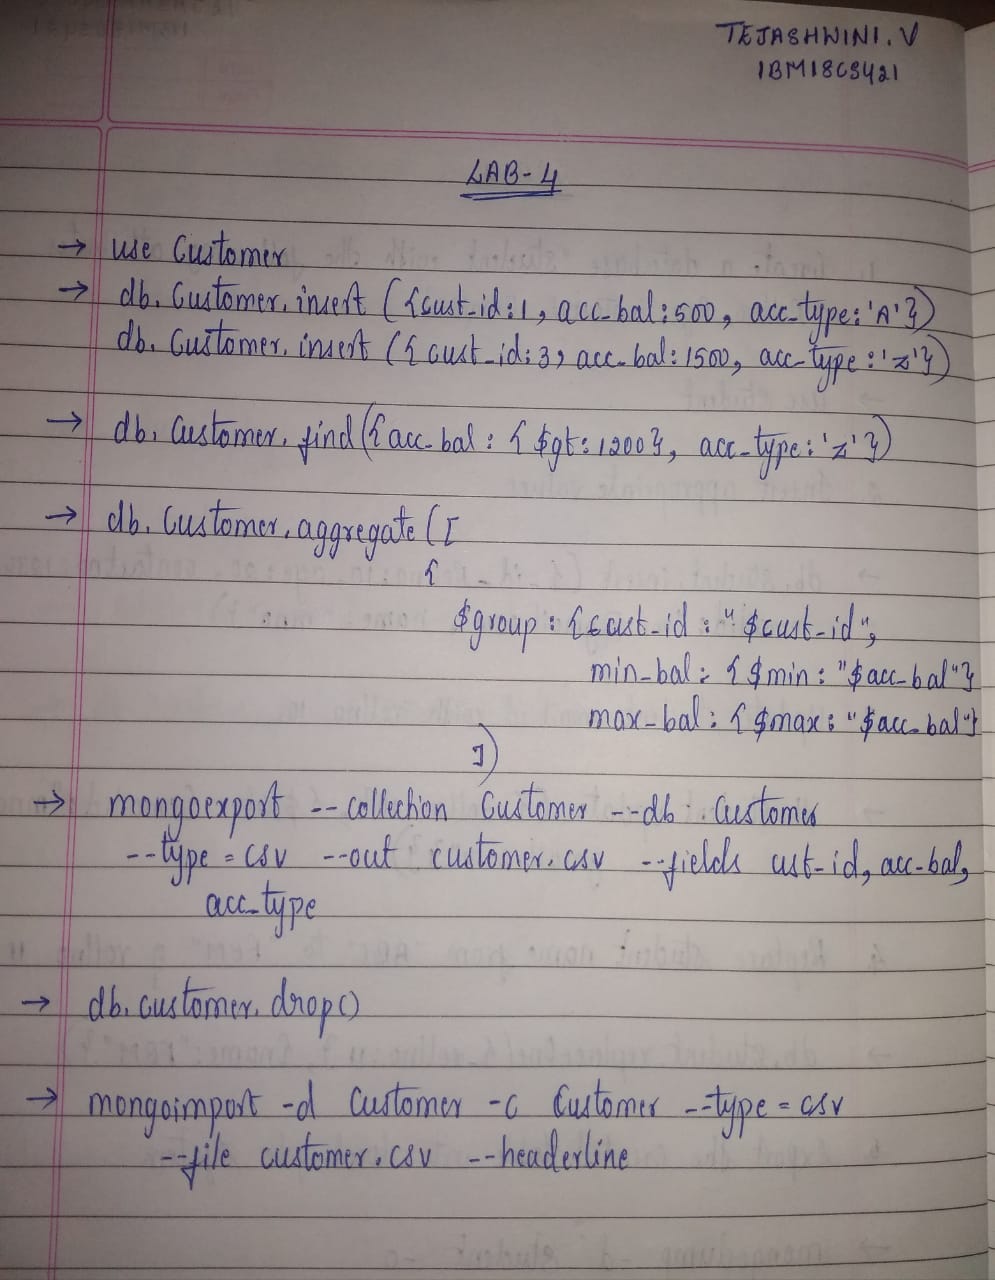 TEJASHWINI. V
1BM18CS421
LAB-4
→ use Customer
→ db. Customer. insert ({cust_id:1, acc_bal:500, acc_type:'A'})
db. Customer. insert ({cust_id:3, acc_bal:1500, acc_type:'z'})
→ db. Customer. find({acc_bal : {$gt:1200}, acc_type:'z'})
→ db. Customer. aggregate ([
{
$group : {cust_id : "$cust_id",
min_bal : {$min : "$acc_bal"}
max_bal : {$max : "$acc_bal"}
])
→ mongoexport --collection Customer --db Customer
--type=csv --out customer.csv --fields ust_id, acc_bal,
acc_type
→ db. customer. drop()
→ mongoimport -d Customer -c Customer --type=csv
--file customer.csv --headerline